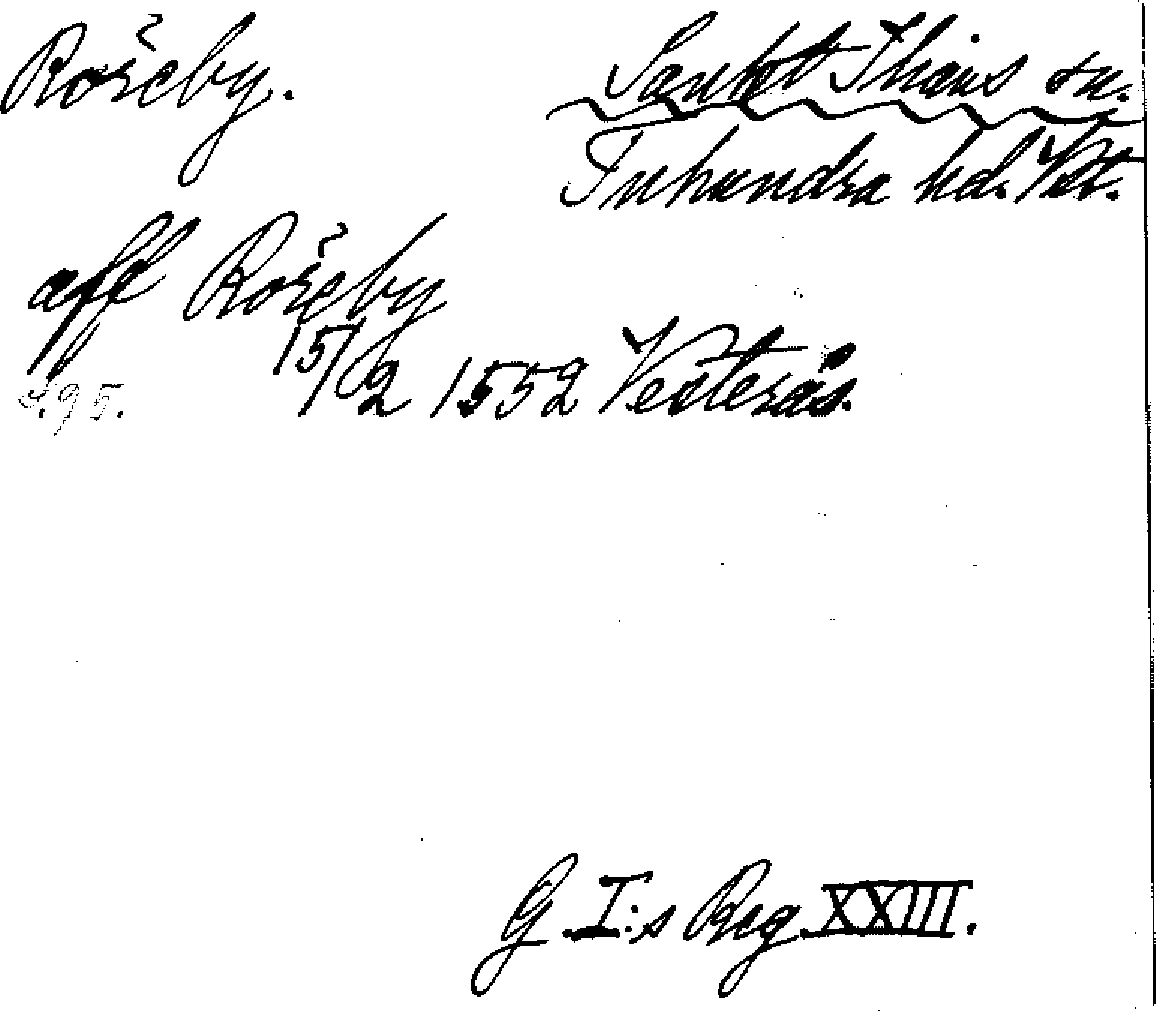 Rořeby.
Sankt Ilians sn.
Tuhundra hd. Vst.
aff Rořeby
15/2 1552 Vesterås.
s. 95.
G I:s Reg. XXIII.